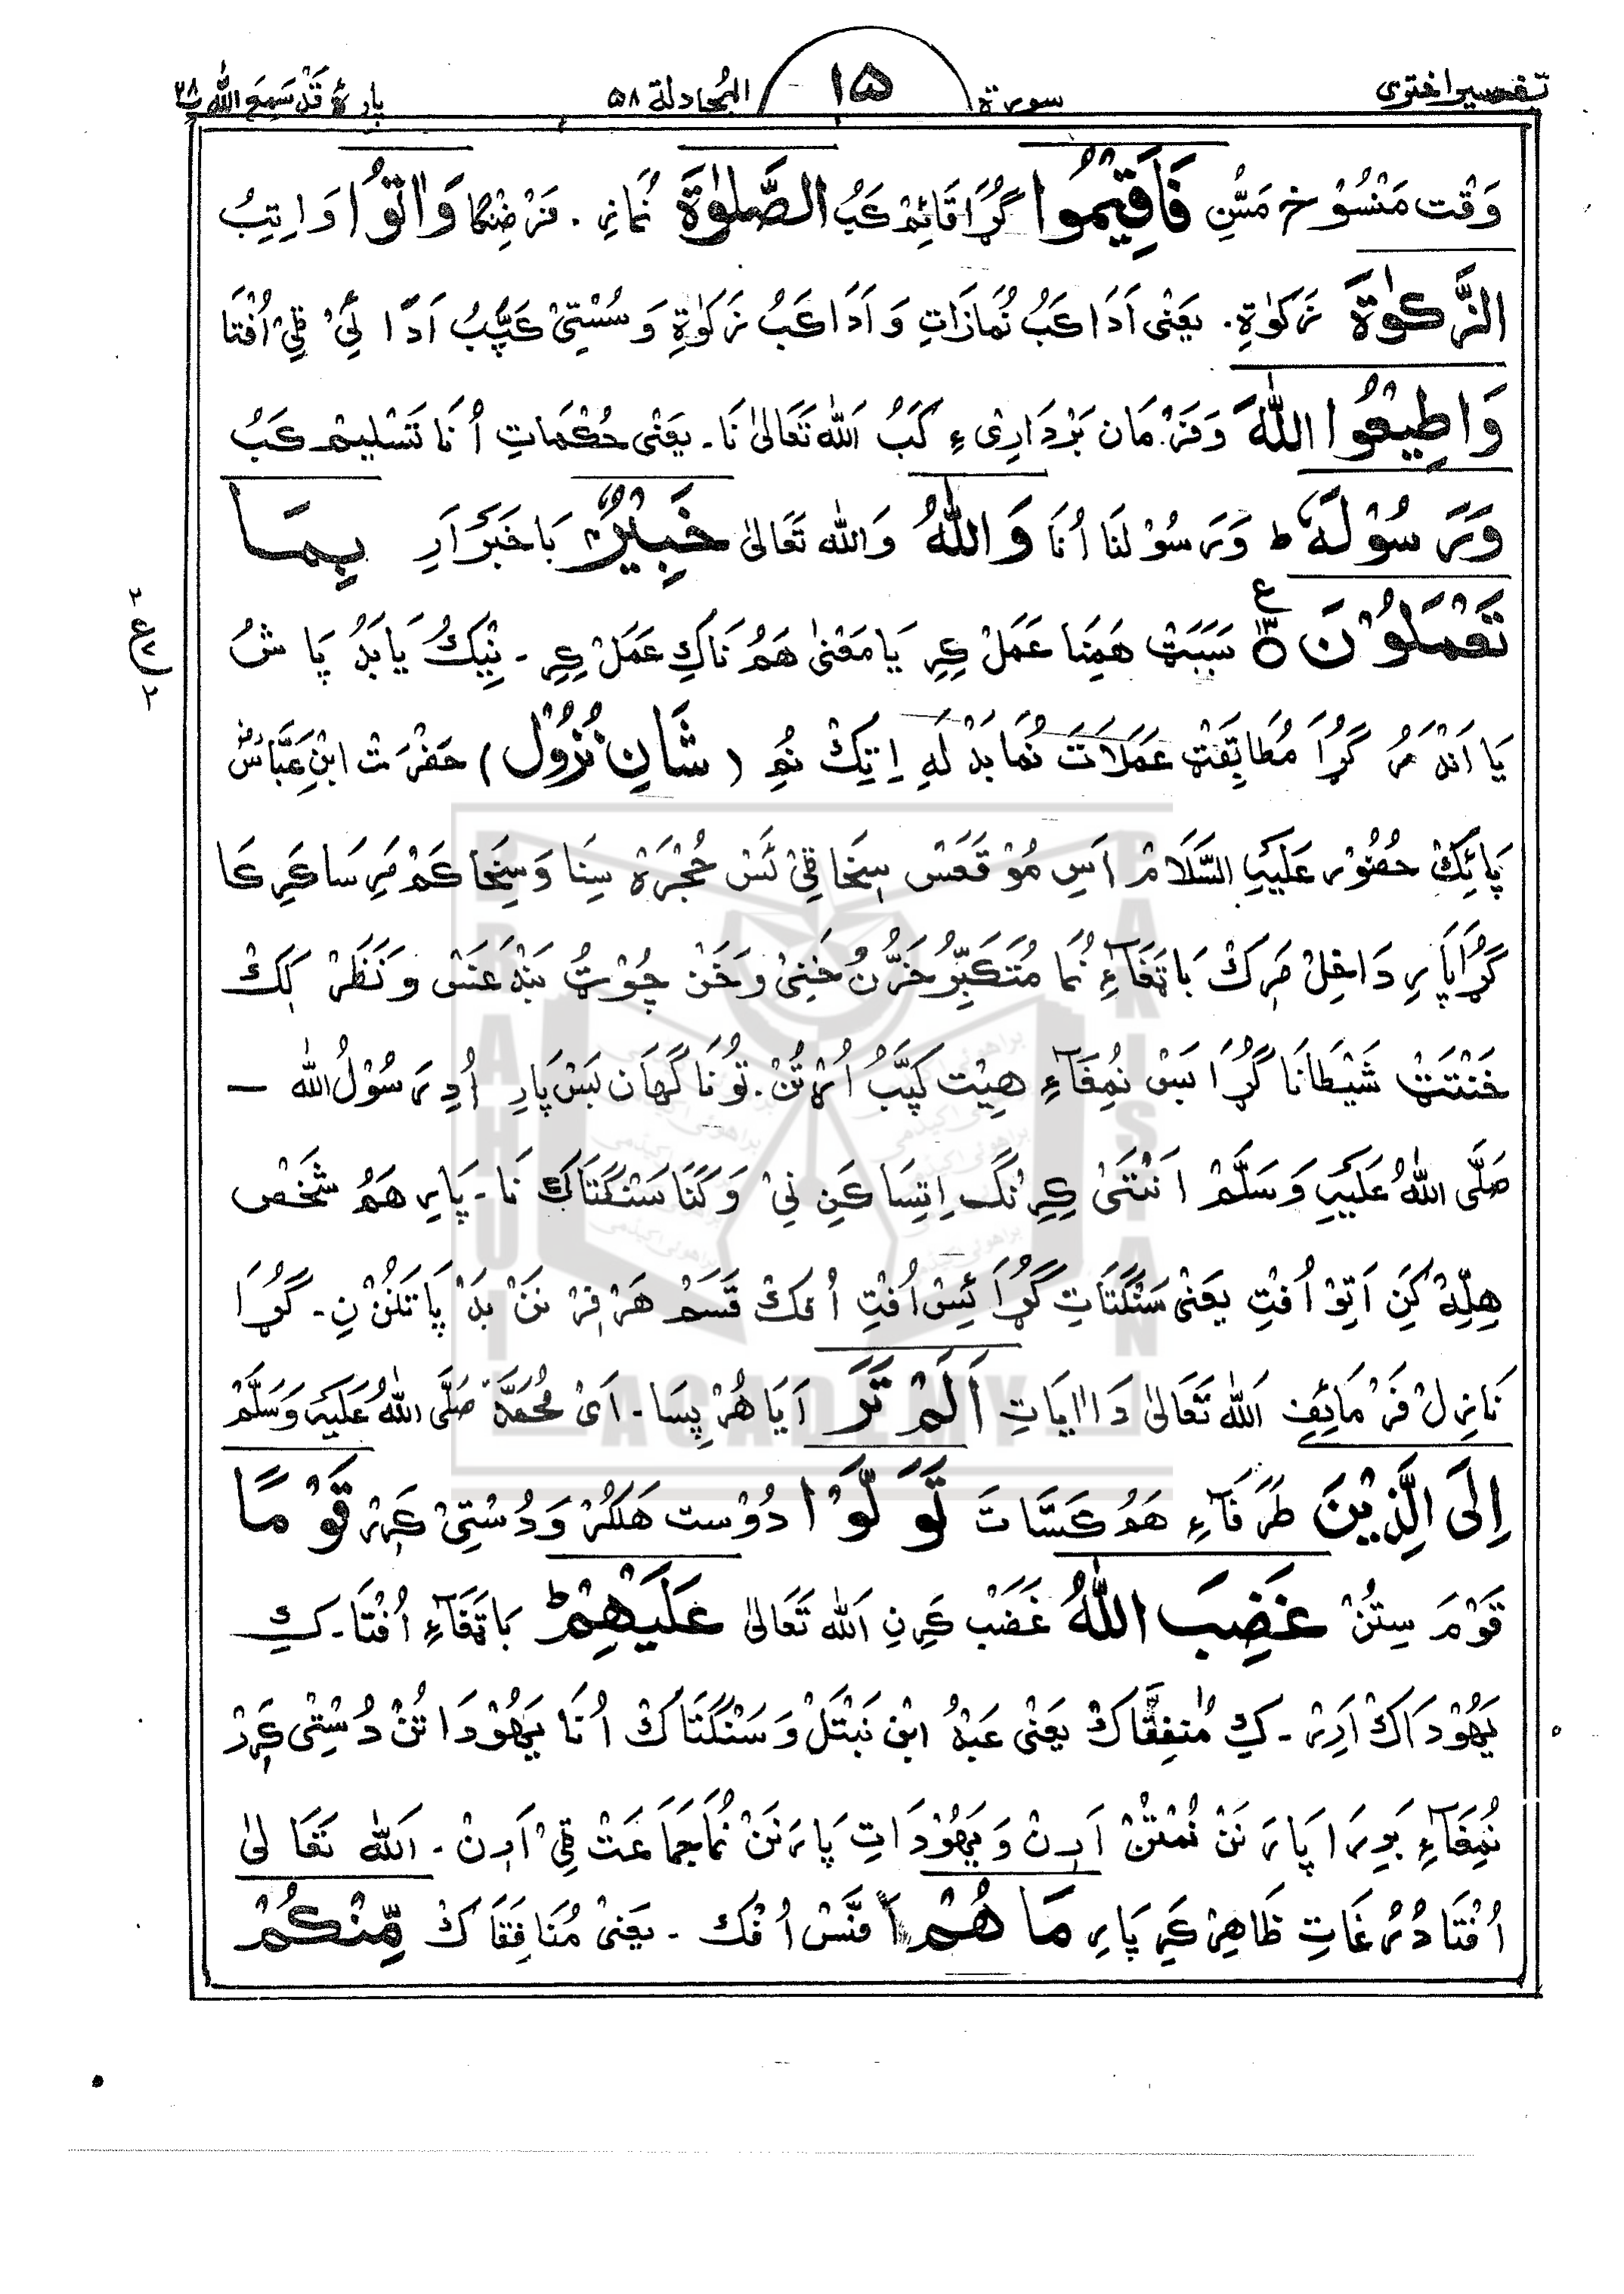 تفسیر اختری سورة ١٥ المجادلة ٥٨ پارهٔ قَدْ سَمِعَ اللّٰه ٢٨
وَقْت مَنْسُوْخ مَسُّنِ فَاَقِيْمُوا گُڑَا قَائِمْ کَبُ الصَّلٰوةَ نُمَازِ. فَرْضِنگا وَاٰتُوا وَ اِتِبُ
الزَّكٰوةَ زَکوٰةِ. یَعْنٰی اَدَا کَبُ نُمَازَاتِ وَ اَدَا کَبُ زَکوٰةِ وَ سُسْتِیْ کَپَّبُ اَدَا ئِیْ ٹِیْ اُفْتَا
وَاَطِيْعُوا اللّٰهَ وَ فَرْمَان بَرْدَارِیْ ءِ کَبُ اَللّٰه تَعَالیٰ نَا۔ یَعْنٰی حُکْمَاتِ اُنَا تَسْلِیْم کَبُ
وَرَسُوْلَهٗ ط وَ رَسُوْلنَا اُنَا وَاللّٰهُ وَاللّٰه تَعَالیٰ خَبِيْرٌۢ بَاخَبَر اَرِ بِمَا
تَعْمَلُوْنَ ۝١٣ سَبَبَتْ هَمِنَا عَمَلْ کِرِ یَا مَعْنیٰ هَمُ نَاکِ عَمَلْ کِرِ ۔ نِیْکُ یَا بَدُ پَا شُ
یَا اَنْدَمُ گُڑَا مُطَابِقَتْ عَمَلَاتَ نُمَا بَدْلَهِ اِتِکْ نُمِ (شَانِ نُزُوْل) حَضْرَتْ ابْنِ عَبَّاسؓ
پَائِکْ حُضُوْر عَلَیْهِ السَّلَامْ اَسِ مُوْقَعَسْ سِخَا ٹِیْ ئَسْ حُجْرَهْ سِنَا وَ سِخَا کَمْ مَرِسَا کَرِ کَا
گُڑَا پَارِ دَاخِلْ مَرِکْ بَاتِغَاءِ نُمَا مُتَکَبِّرُ خَرُّنُ خَنِیْ وَ خَنْ چُوْتْ بَنْدَغَسْ وَ نَظَرْ کِکْ
خَنْتَتْ شَیْطَانَا گُڑَا بَسْ نُمِغَاءِ هِیْت کَپَّبُ اُرْتَنْ. تُو نَاگَهَان بَسْ پَارِ اُدِ رَسُوْلُ اللّٰه —
صَلَّی اللّٰهُ عَلَیْهِ وَسَلَّمْ اَنْتَئیْ کِرِنْگ اِتِسَا کَنِ نِیْ وَ کَنَا سَنْگَتَاکْ نَا ۔ پَارِ هَمُ شَخْص
هِلِّهْ کَنِ اَتِوْ اُفْتِ یَعْنٰی سَنْگَتَاتِ گُڑَا ئِسْ اُفْتِ اُفکْ قَسَمْ هَرْفِرْ نَنْ بَدْ پَاتَنُنْ نِ ۔ گُڑَا
نَازِل فَرْمَائِفِ اَللّٰه تَعَالیٰ دَا اٰیَاتِ اَلَمْ تَرَ اٰیَا هُرْپِسَا ۔ اَیْ مُحَمَّدْ صَلَّی اللّٰهُ عَلَیْهِ وَسَلَّمْ
اِلَى الَّذِيْنَ طَرَفَاءِ هَمُ کَسَّاتَ تَوَلَّوْا دُوْست هَلکُرْ وَ دُسْتِیْ کَرِرْ قَوْمًا
قَوْمَ سِتَنْ غَضِبَ اللّٰهُ غَضَبْ کَرِنِ اَللّٰه تَعَالیٰ عَلَيْهِمْ ط بَاتِغَاءِ اُفْتَا۔ کِ
یَهُوْدَاکْ اَرِرْ ۔ کِ مُنٰفِقَّاکْ یَعْنٰی عَبْدُ ابْن نَبْتَلْ وَ سَنْگَتَاکْ اُنَا یَهُوْدَا تَنْ دُسْتِیْ کَرِرْ
نُمِغَاءِ بَرِرَا پَارَ نَنْ نُمْتَنْ اَرِنْ وَ یَهُوْدَاتِ پَارَ نَنْ نُمَا جَمَاعَتْ ٹِیْ اَرِنْ ۔ اَللّٰه تَعَالیٰ
اُفْتَا دُرُغَاتِ ظَاهِرْ کَرِ پَارِ مَا هُمْ اَفَّسْ اُفْکْ ۔ یَعْنیٰ مُنَافِقَاکْ مِّنْكُمْ
٢
ع
٢
BRAHUI ACADEMY PAKISTAN